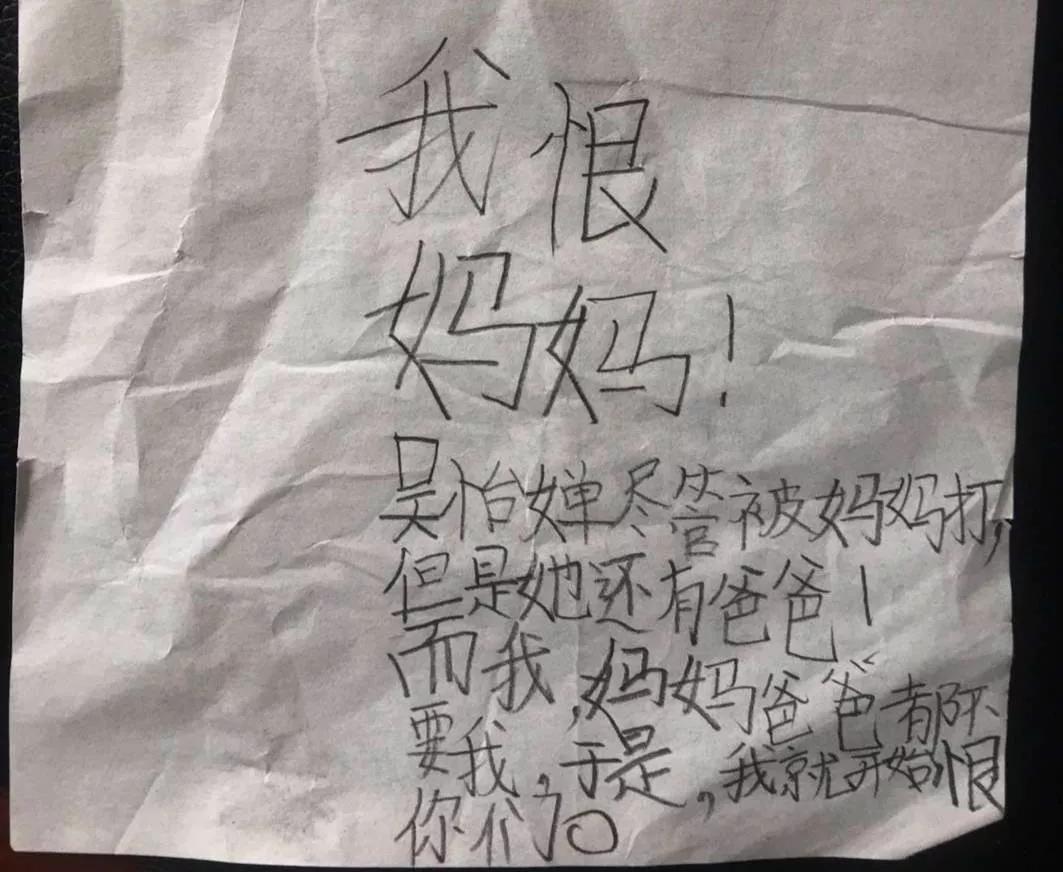 我恨
妈妈！
吴怡婵尽管被妈妈打，
但是她还有爸爸！
而我，妈妈爸爸都不
要我，于是，我就开始恨
你们。